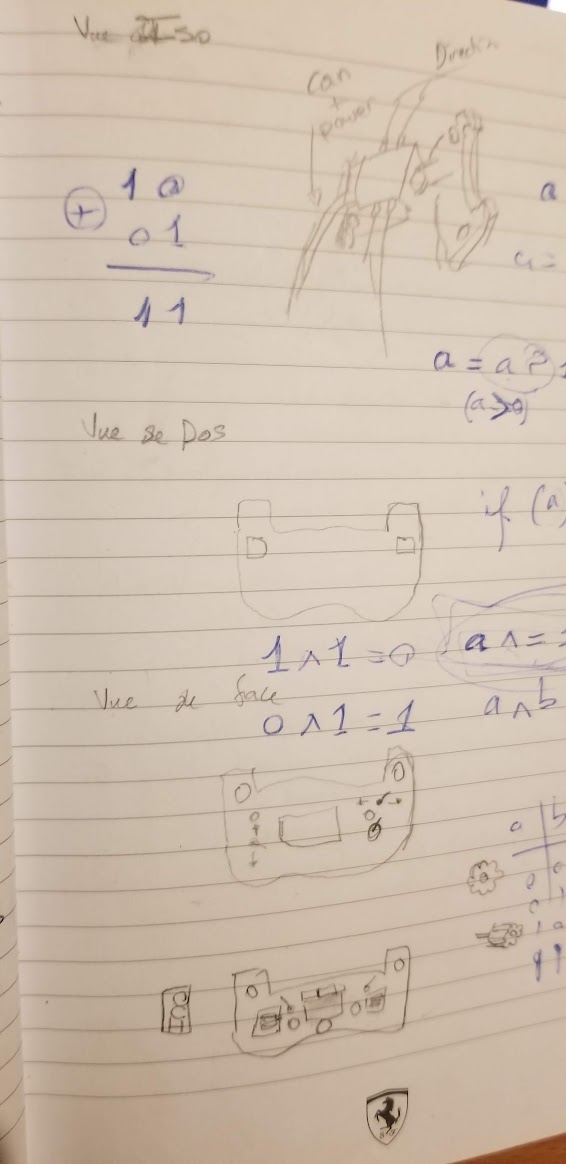 Vue ISO
Direction
Can
+
power
1 0
+ 0 1
1 1
a
a =
a = a ? 1
(a>0)
Vue de Dos
if (a)
1 ∧ 1 = 0
a ∧ =
Vue de face
0 ∧ 1 = 1
a ∧ b
a b
0 0
0 1
1 0
1 1